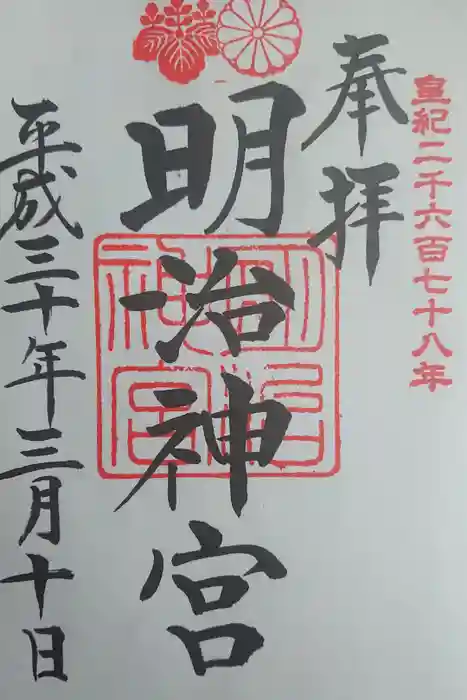 皇紀二千六百七十八年
奉拝
明治神宮
明治神宮
平成三十年三月十日